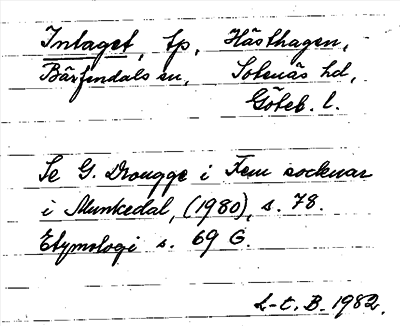 Intaget, tp, Hästhagen,
Bärfendals sn, Sotenäs hd,
Göteb. l.
Se G. Drougge i Fem socknar
i Munkedal, (1980), s. 78.
Etymologi s. 69 G.
L-t. B. 1982.